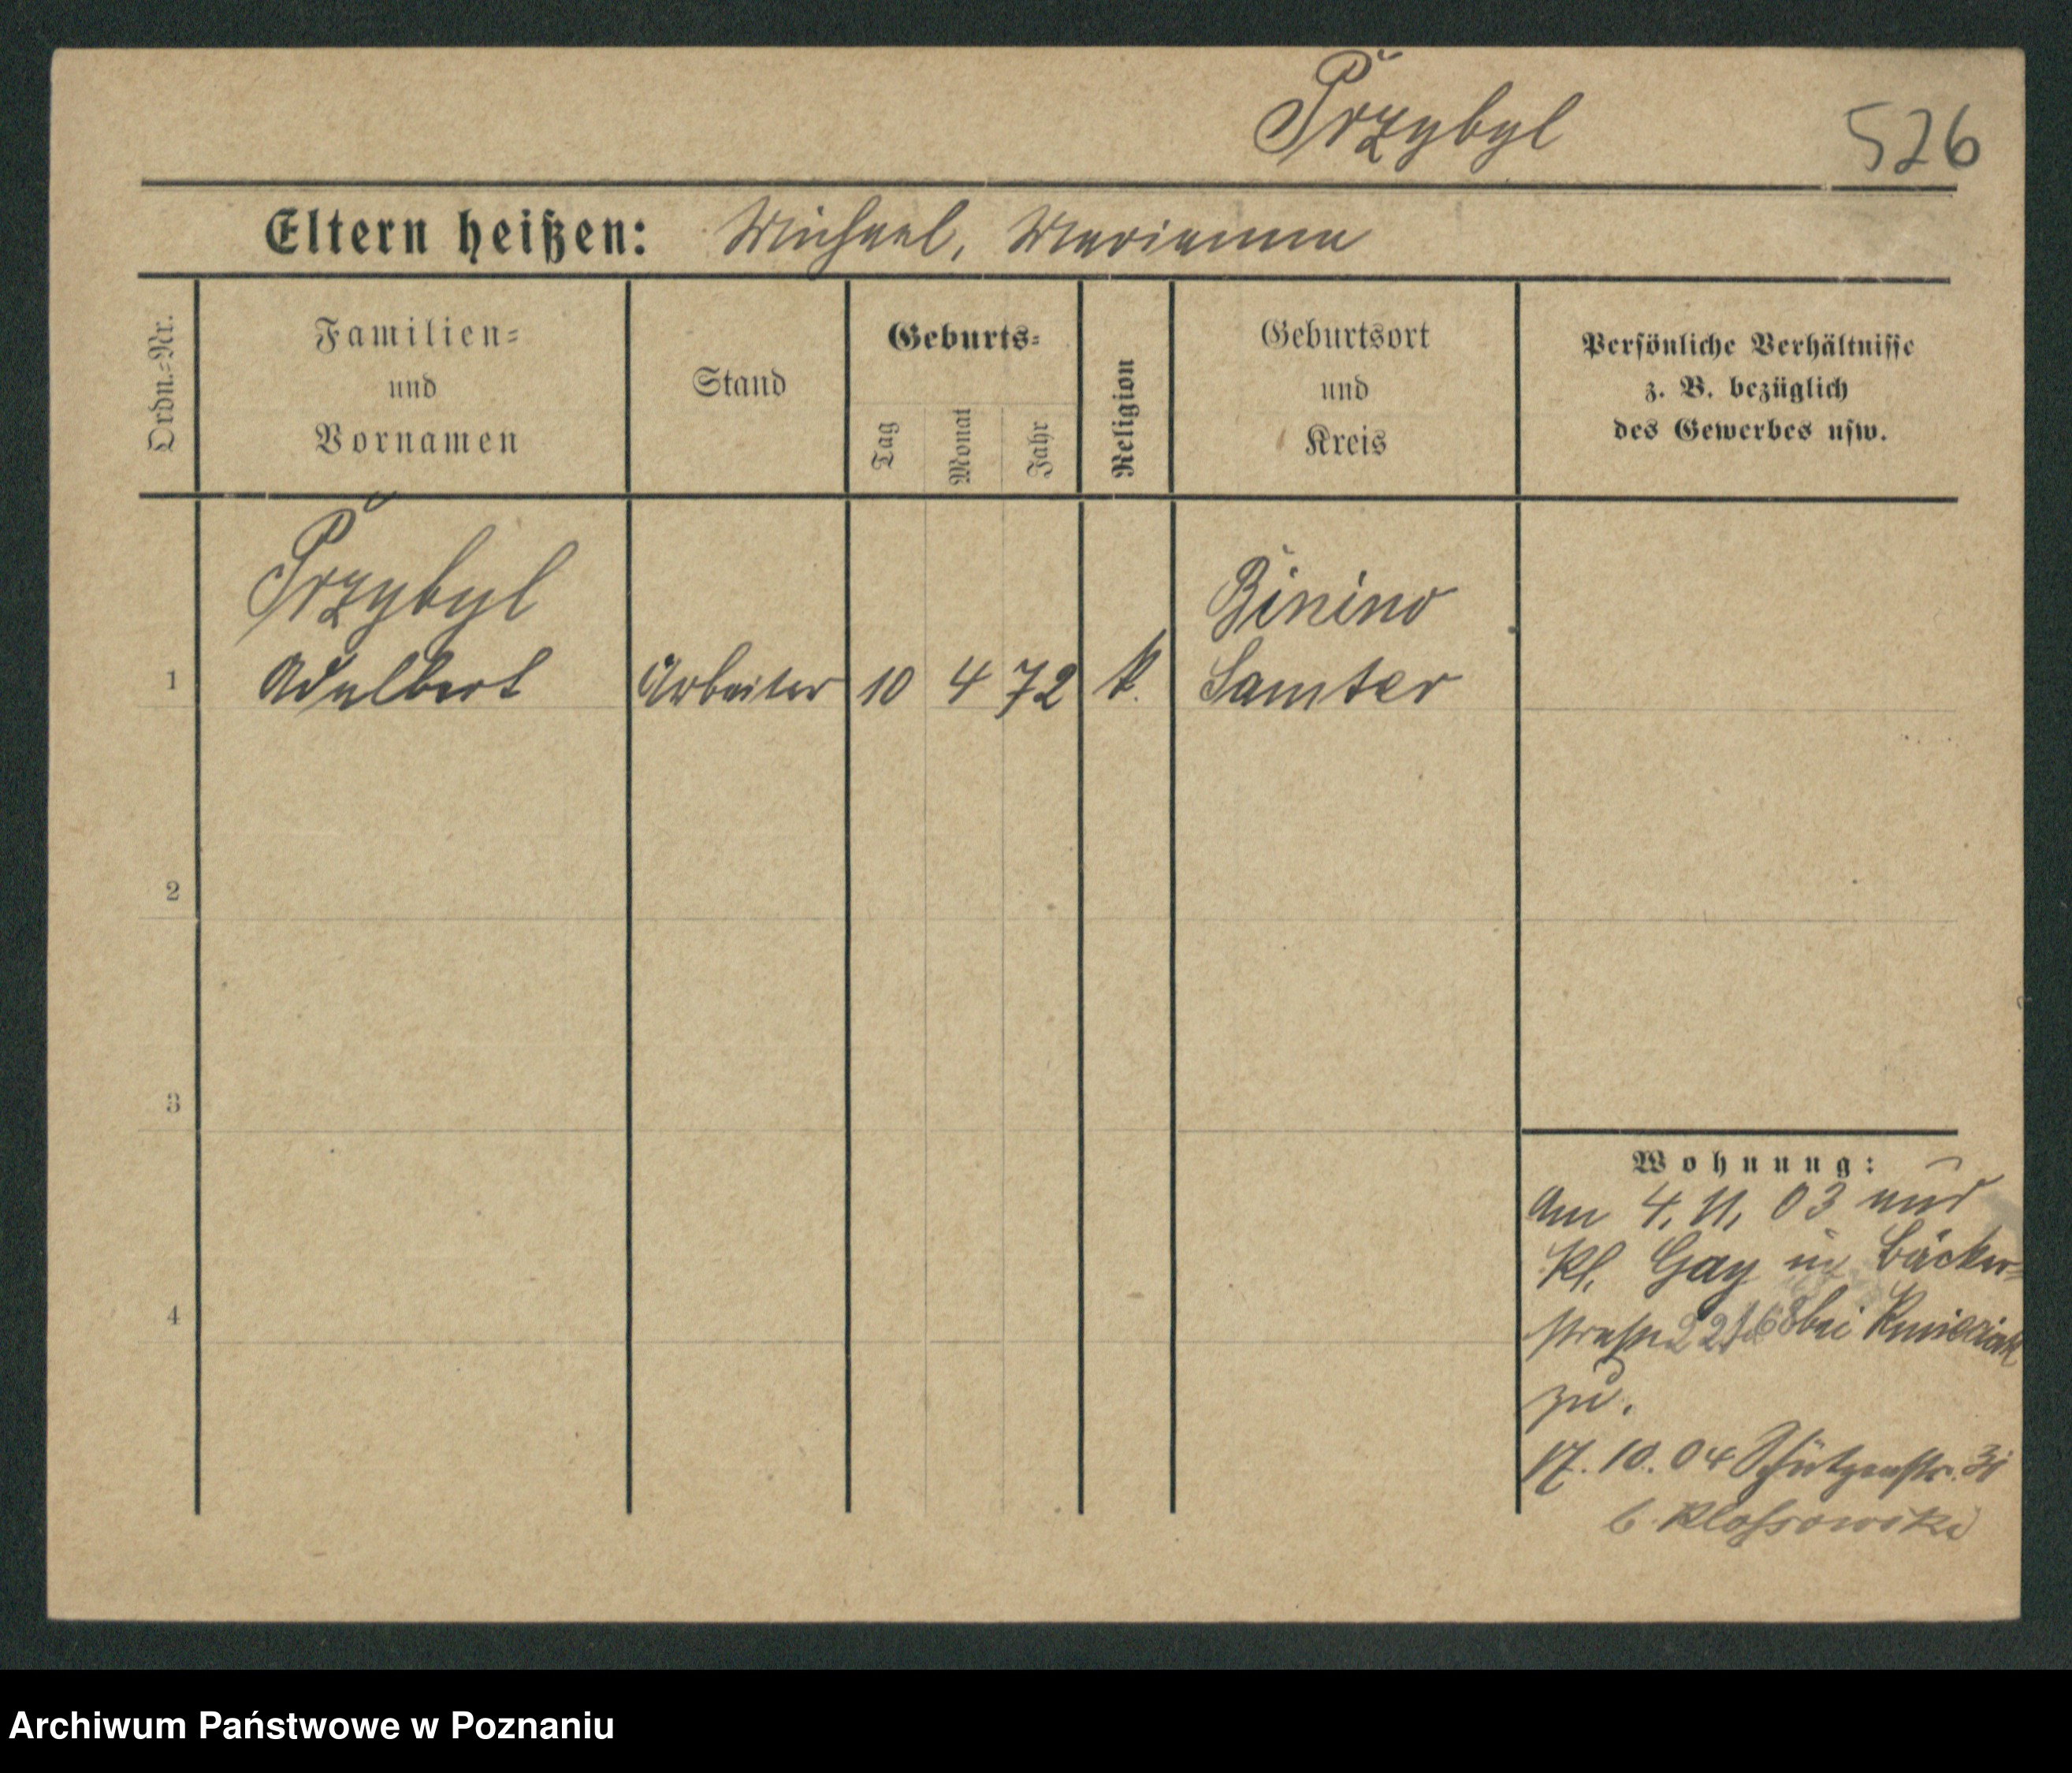 Przybyl 526
Eltern heißen: Michael, Marianna
Ordn.-Nr.
Familien-
und
Vornamen
Stand
Geburts-
Tag
Monat
Jahr
Religion
Geburtsort
und
Kreis
Persönliche Verhältnisse
z. B. bezüglich
des Gewerbes usw.
Przybyl Binino
1 Adalbert Arbeiter 10 4 72 k. Samter
2
3
4
Wohnung:
Am 4. 11. 03 aus
Kl. Gay in Bäcker-
straße bei
zu.
17. 10. 04 Schützenstr. 31
b. Klossowski
Archiwum Państwowe w Poznaniu